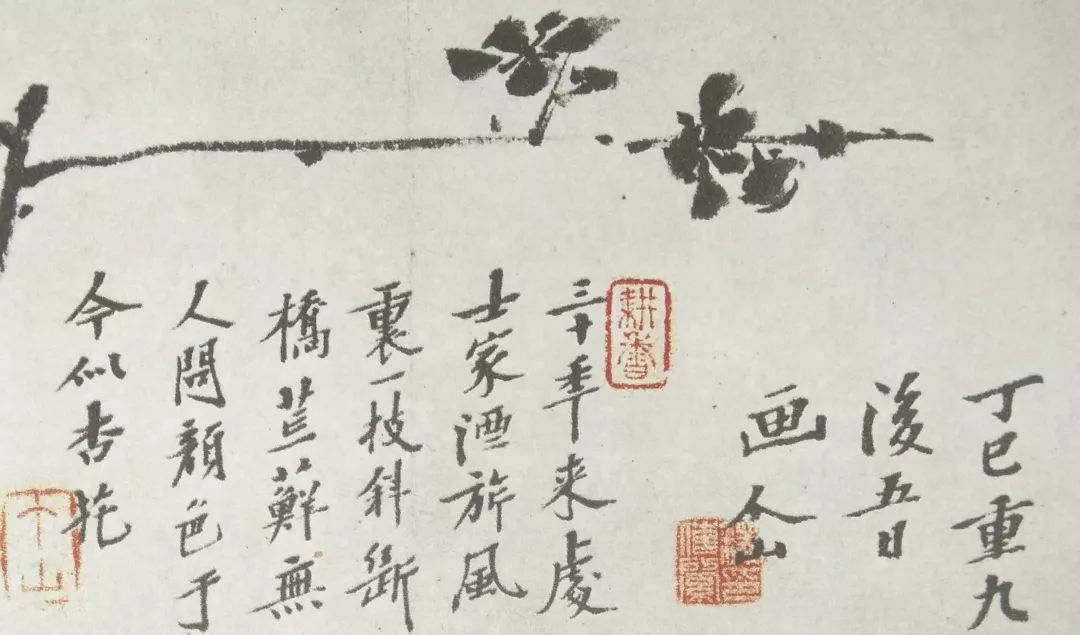 丁巳重九
後五日
画个山
耕香
三十年来處
士家酒旂風
裏一枝斜斷
橋荒蘚無
人問顏色于
今似杏花
个山